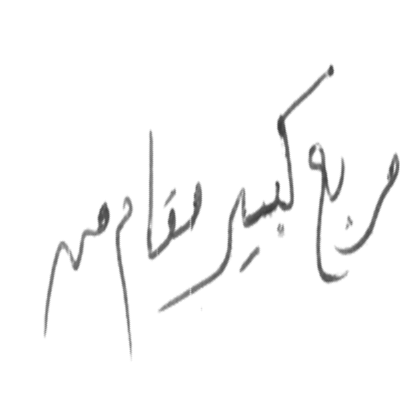 مربع كبير مقام